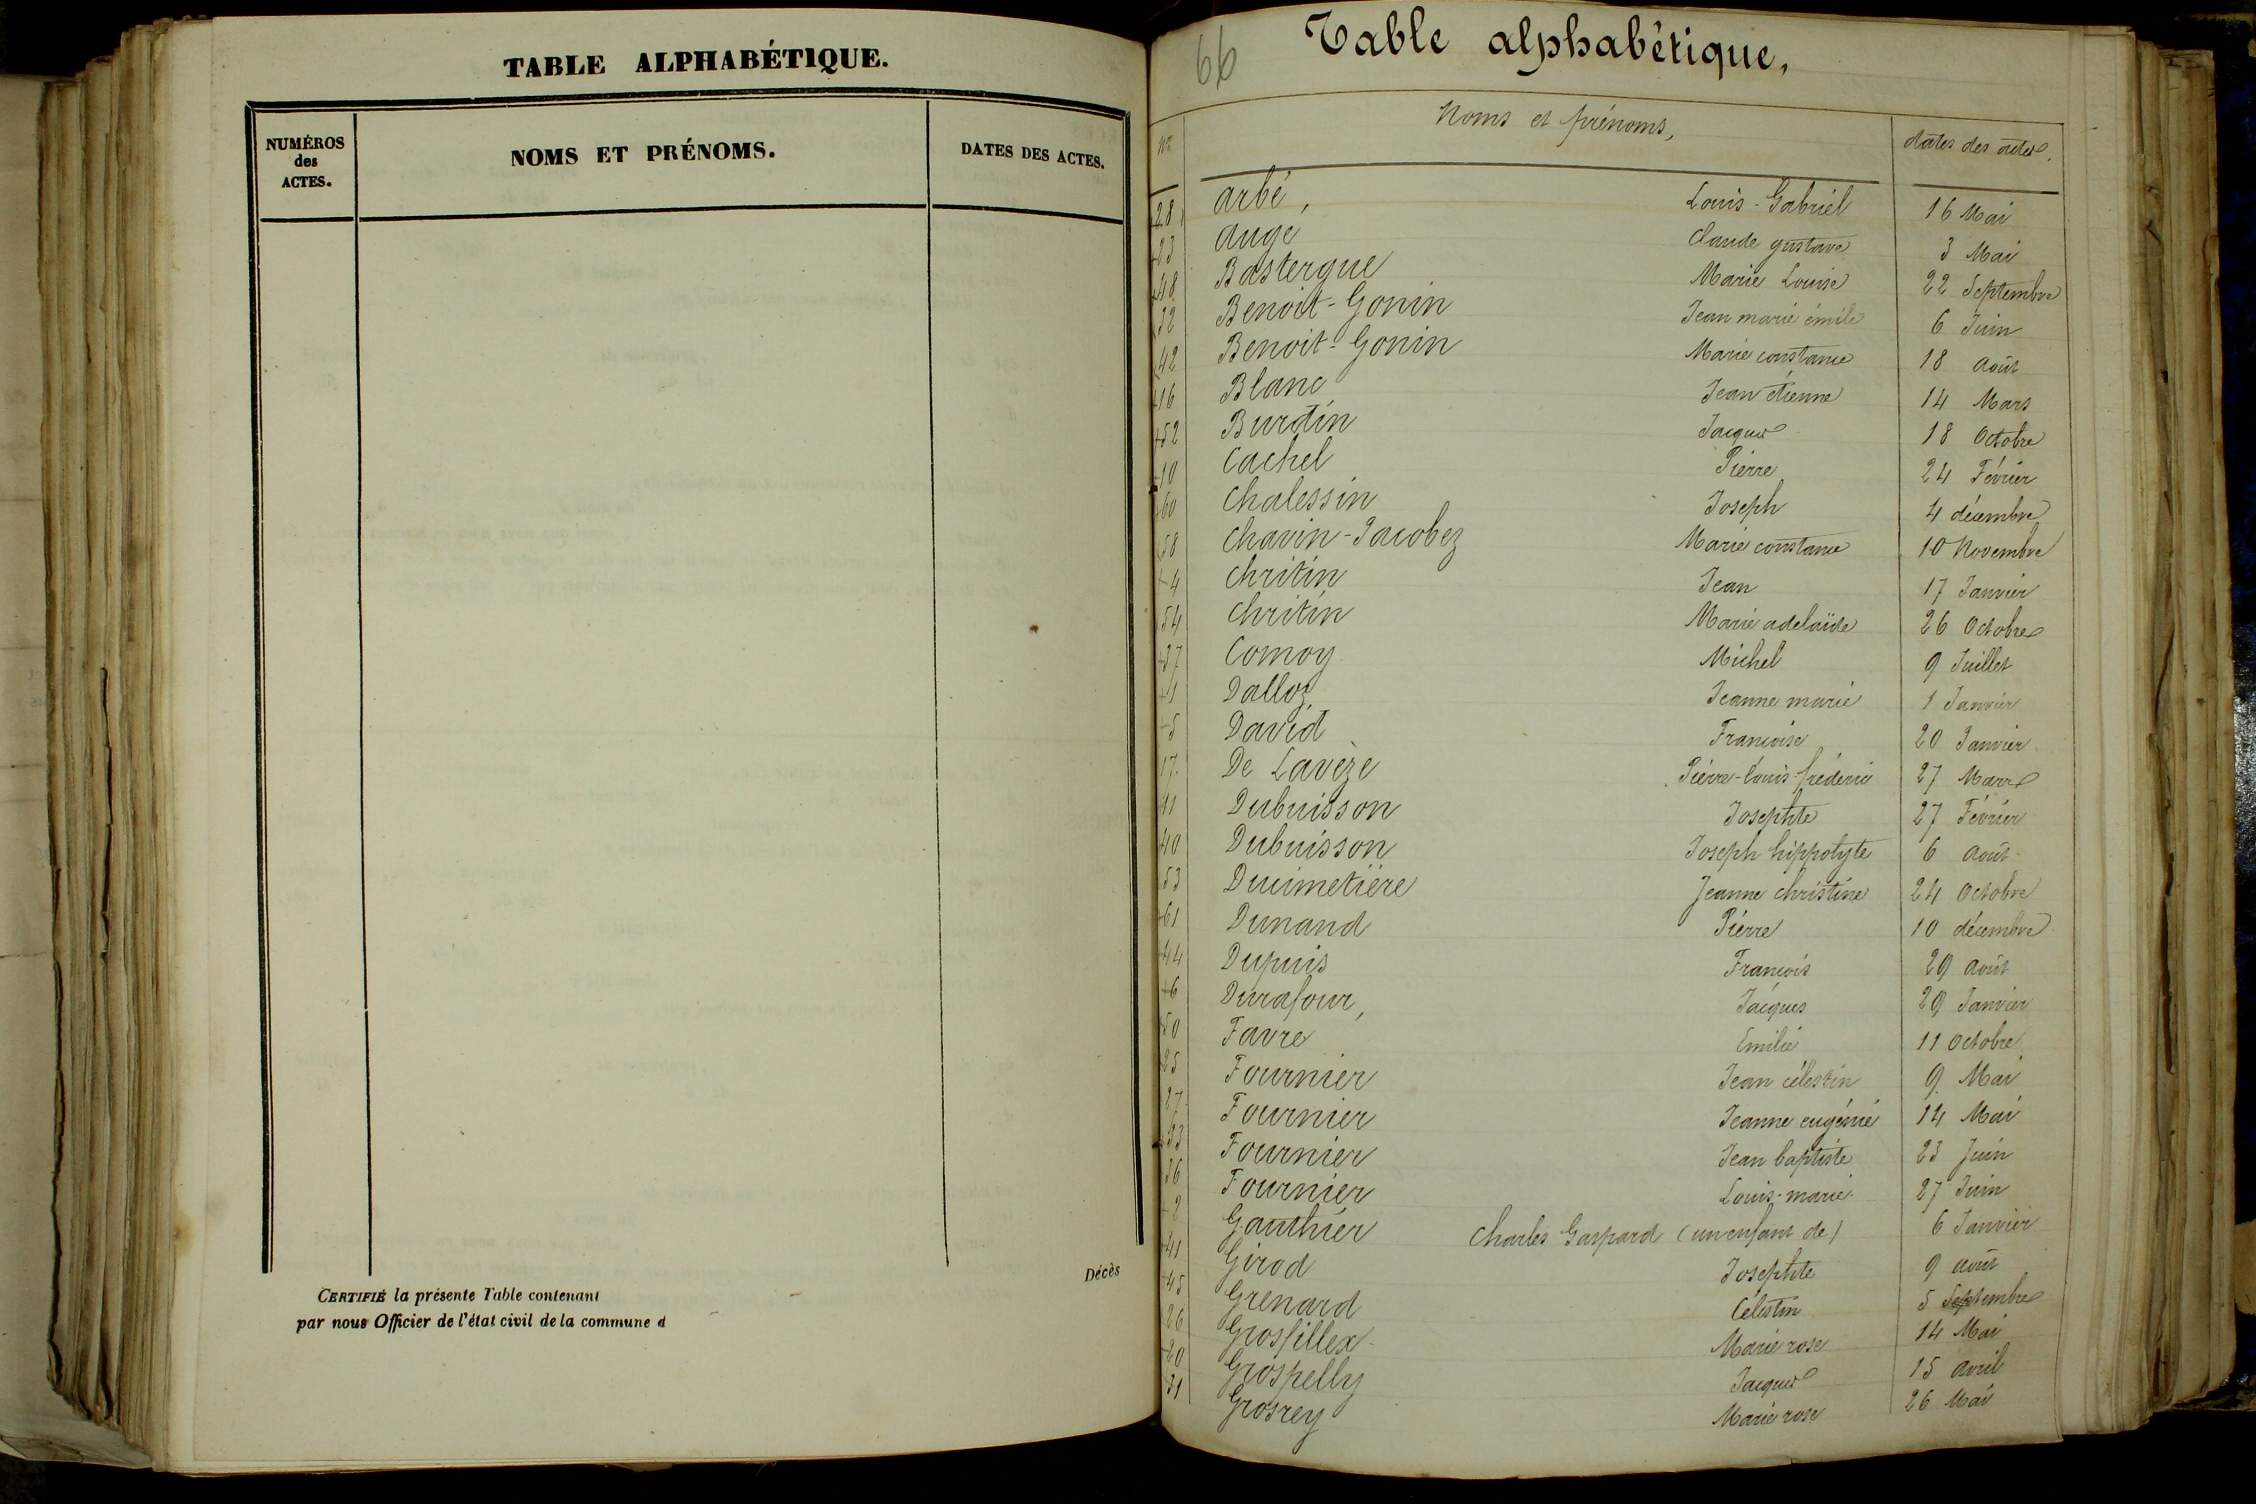 TABLE ALPHABÉTIQUE.
NUMÉROS des ACTES. NOMS ET PRÉNOMS. DATES DES ACTES.
Décès
CERTIFIÉ la présente Table contenant
par nous Officier de l'état civil de la commune d
66 Table alphabétique,
Nos Noms et prénoms, dates des actes.
28 arbé, Louis-Gabriel 16 Mai
23 auge Claude gustave 3 Mai
48 Bastergue Marie Louise 22 Septembre
32 Benoit-Gonin Jean marie émile 6 Juin
42 Benoit-Gonin Marie constance 18 août
16 Blanc Jean étienne 14 Mars
52 Burdin Jacques 18 Octobre
10 Cachel Pierre 24 Février
60 Chalessin Joseph 4 décembre
58 Chavin-Jacobez Marie constance 10 Novembre
4 Chritin Jean 17 Janvier
54 Chritin Marie adelaïde 26 Octobre
37 Comoy Michel 9 Juillet
1 Dalloz Jeanne marie 1 Janvier
5 David Françoise 20 Janvier
17 De Lavèze Pierre-Louis-fréderic 27 Mars
11 Dubuisson Josephte 27 Février
40 Dubuisson Joseph hippolyte 6 août
53 Ducimetière Jeanne christine 24 Octobre
61 Dunand Pierre 10 décembre
44 Dupuis François 29 août
6 Durafour, Jacques 29 Janvier
50 Favre Emilie 11 Octobre
25 Fournier Jean célestin 9 Mai
27 Fournier Jeanne eugénie 14 Mai
33 Fournier Jean baptiste 23 Juin
36 Fournier Louis-marie 27 Juin
2 Gauthier Charles Gaspard (un enfant de) 6 Janvier
41 Girod Josephte 9 août
45 Grenard Célestin 5 Septembre
26 Grosfillex Marie rose 14 Mai
20 Grospelly Jacques 15 avril
31 Grosrey Marie rose 26 Mai